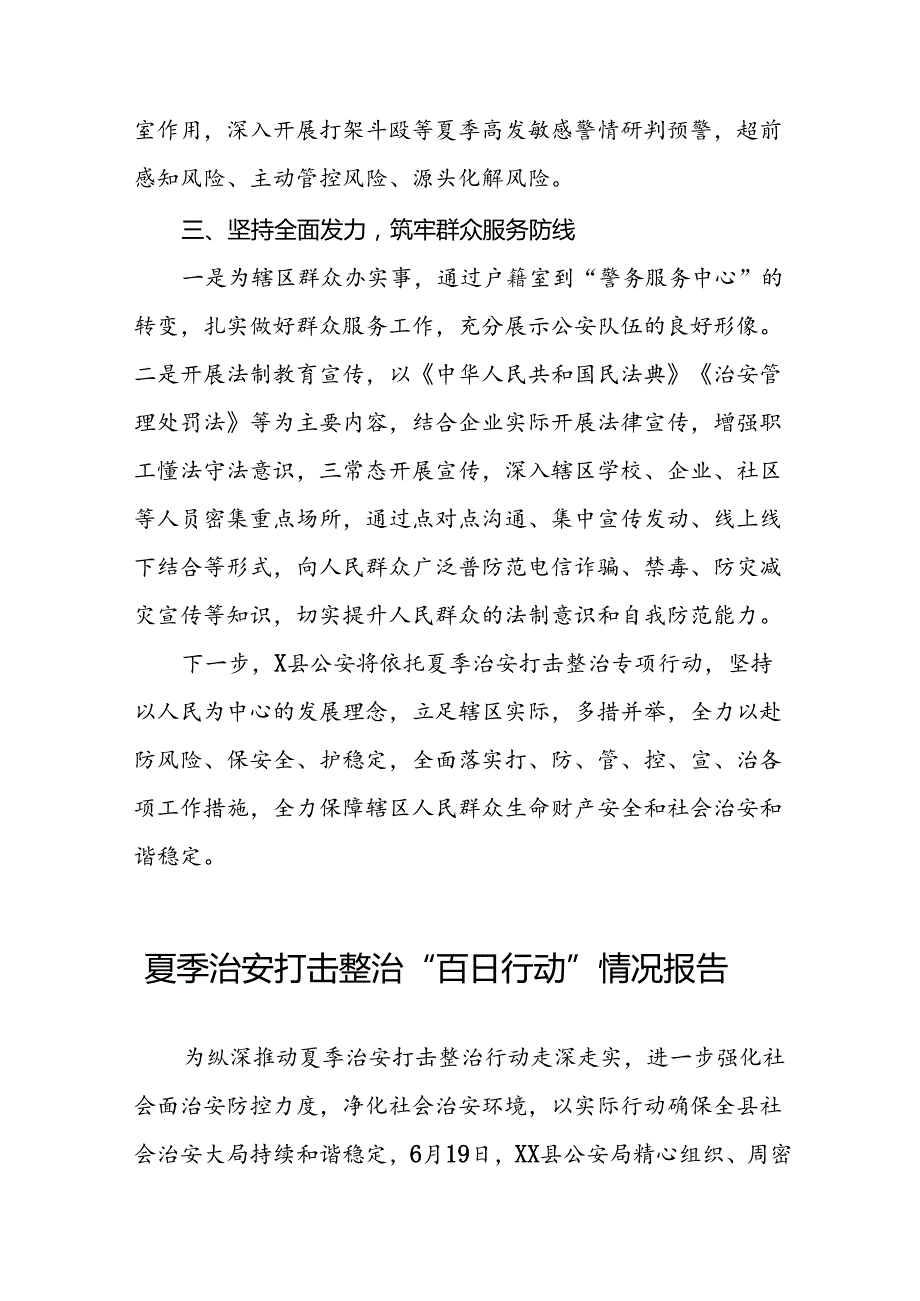 室作用，深入开展打架斗殴等夏季高发敏感警情研判预警，超前
感知风险、主动管控风险、源头化解风险。
三、坚持全面发力，筑牢群众服务防线
一是为辖区群众办实事，通过户籍室到“警务服务中心”的
转变，扎实做好群众服务工作，充分展示公安队伍的良好形像。
二是开展法制教育宣传，以《中华人民共和国民法典》《治安管
理处罚法》等为主要内容，结合企业实际开展法律宣传，增强职
工懂法守法意识，三常态开展宣传，深入辖区学校、企业、社区
等人员密集重点场所，通过点对点沟通、集中宣传发动、线上线
下结合等形式，向人民群众广泛普防范电信诈骗、禁毒、防灾减
灾宣传等知识，切实提升人民群众的法制意识和自我防范能力。
下一步，X县公安将依托夏季治安打击整治专项行动，坚持
以人民为中心的发展理念，立足辖区实际，多措并举，全力以赴
防风险、保安全、护稳定，全面落实打、防、管、控、宣、治各
项工作措施，全力保障辖区人民群众生命财产安全和社会治安和
谐稳定。
夏季治安打击整治“百日行动”情况报告
为纵深推动夏季治安打击整治行动走深走实，进一步强化社
会面治安防控力度，净化社会治安环境，以实际行动确保全县社
会治安大局持续和谐稳定，6月19日，XX县公安局精心组织、周密